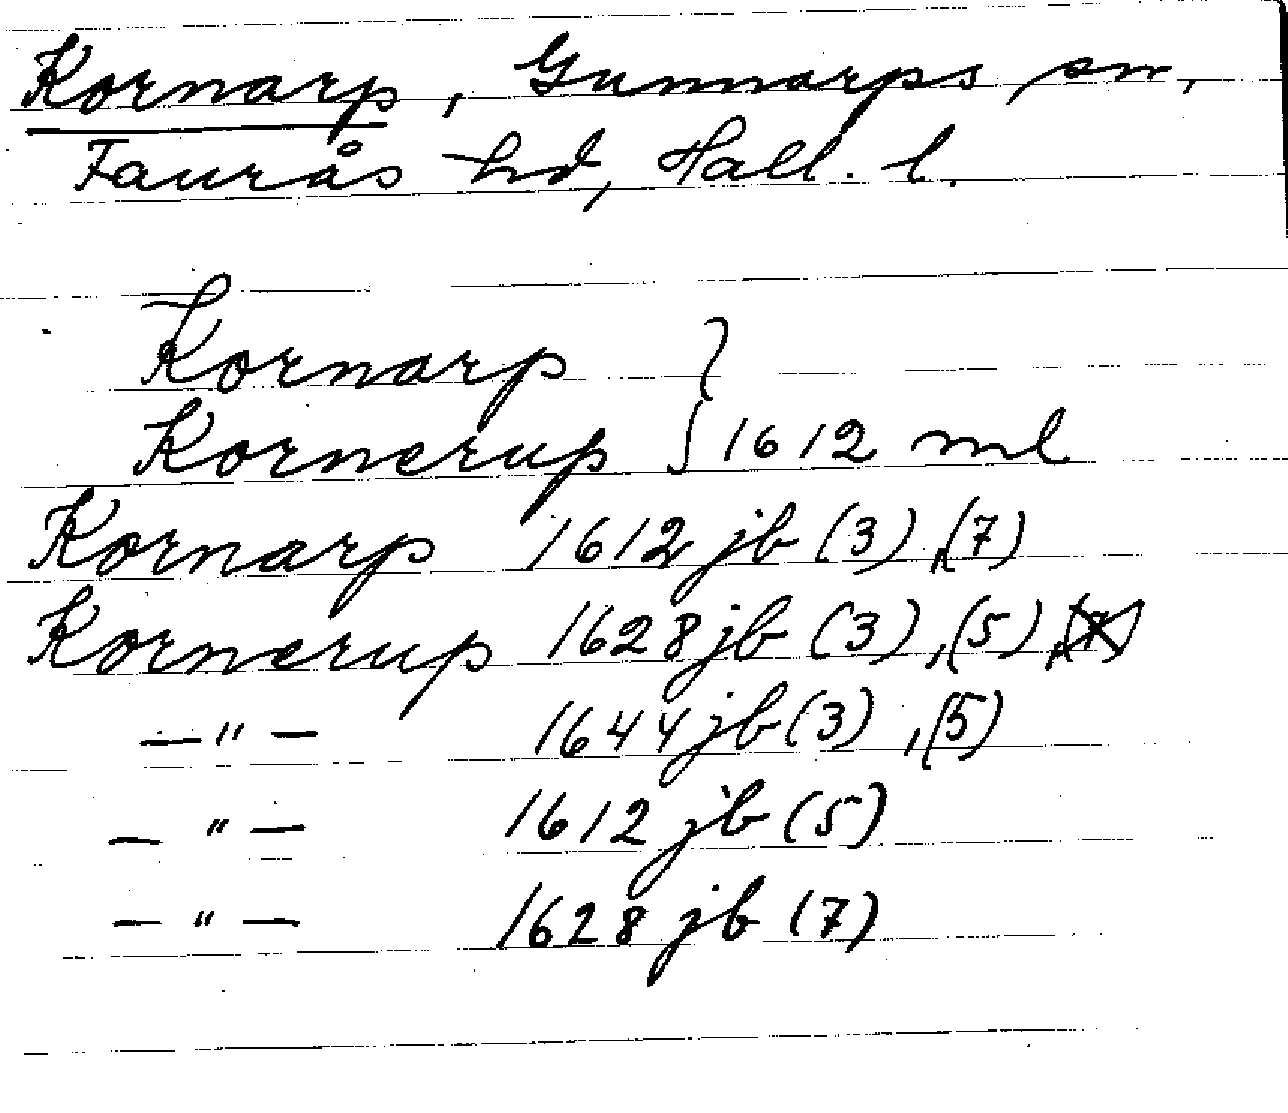 Kornarp, Gunnarps sn,
Faurås hd, Hall. l.
Kornarp }
Kornerup } 1612 ml
Kornarp 1612 jb (3), (7)
Kornerup 1628 jb (3), (5)
—"— 1644 jb (3), (5)
—"— 1612 jb (5)
—"— 1628 jb (7)